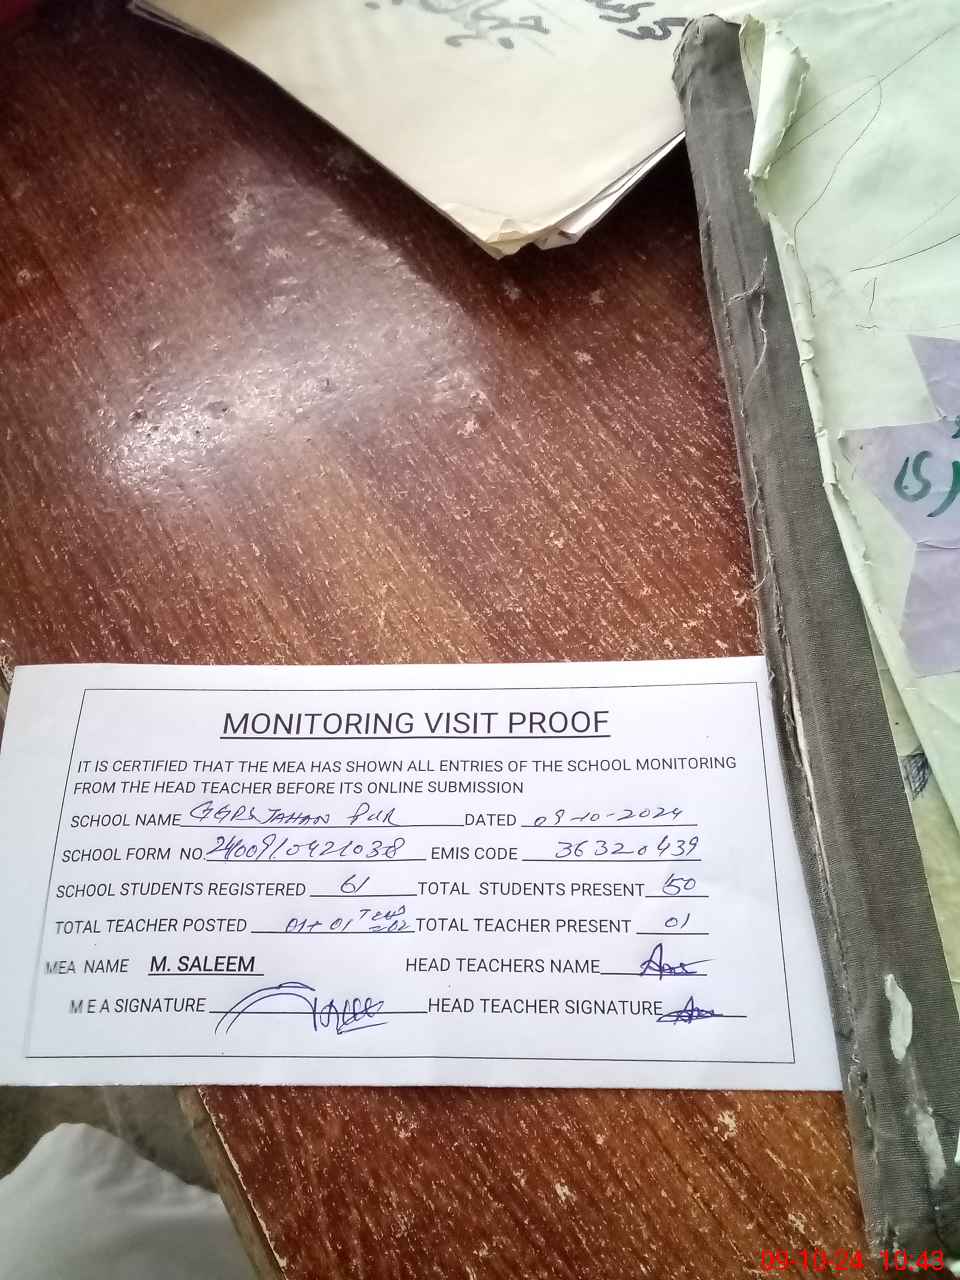 MONITORING VISIT PROOF
IT IS CERTIFIED THAT THE MEA HAS SHOWN ALL ENTRIES OF THE SCHOOL MONITORING
FROM THE HEAD TEACHER BEFORE ITS ONLINE SUBMISSION
SCHOOL NAME GGPS JAHAN PUR DATED 09-10-2024
SCHOOL FORM NO. EMIS CODE 36320439
SCHOOL STUDENTS REGISTERED 61 TOTAL STUDENTS PRESENT 50
TOTAL TEACHER POSTED 01+01 TOTAL TEACHER PRESENT 01
MEA NAME M. SALEEM HEAD TEACHERS NAME
MEA SIGNATURE HEAD TEACHER SIGNATURE
09-10-24 10:43